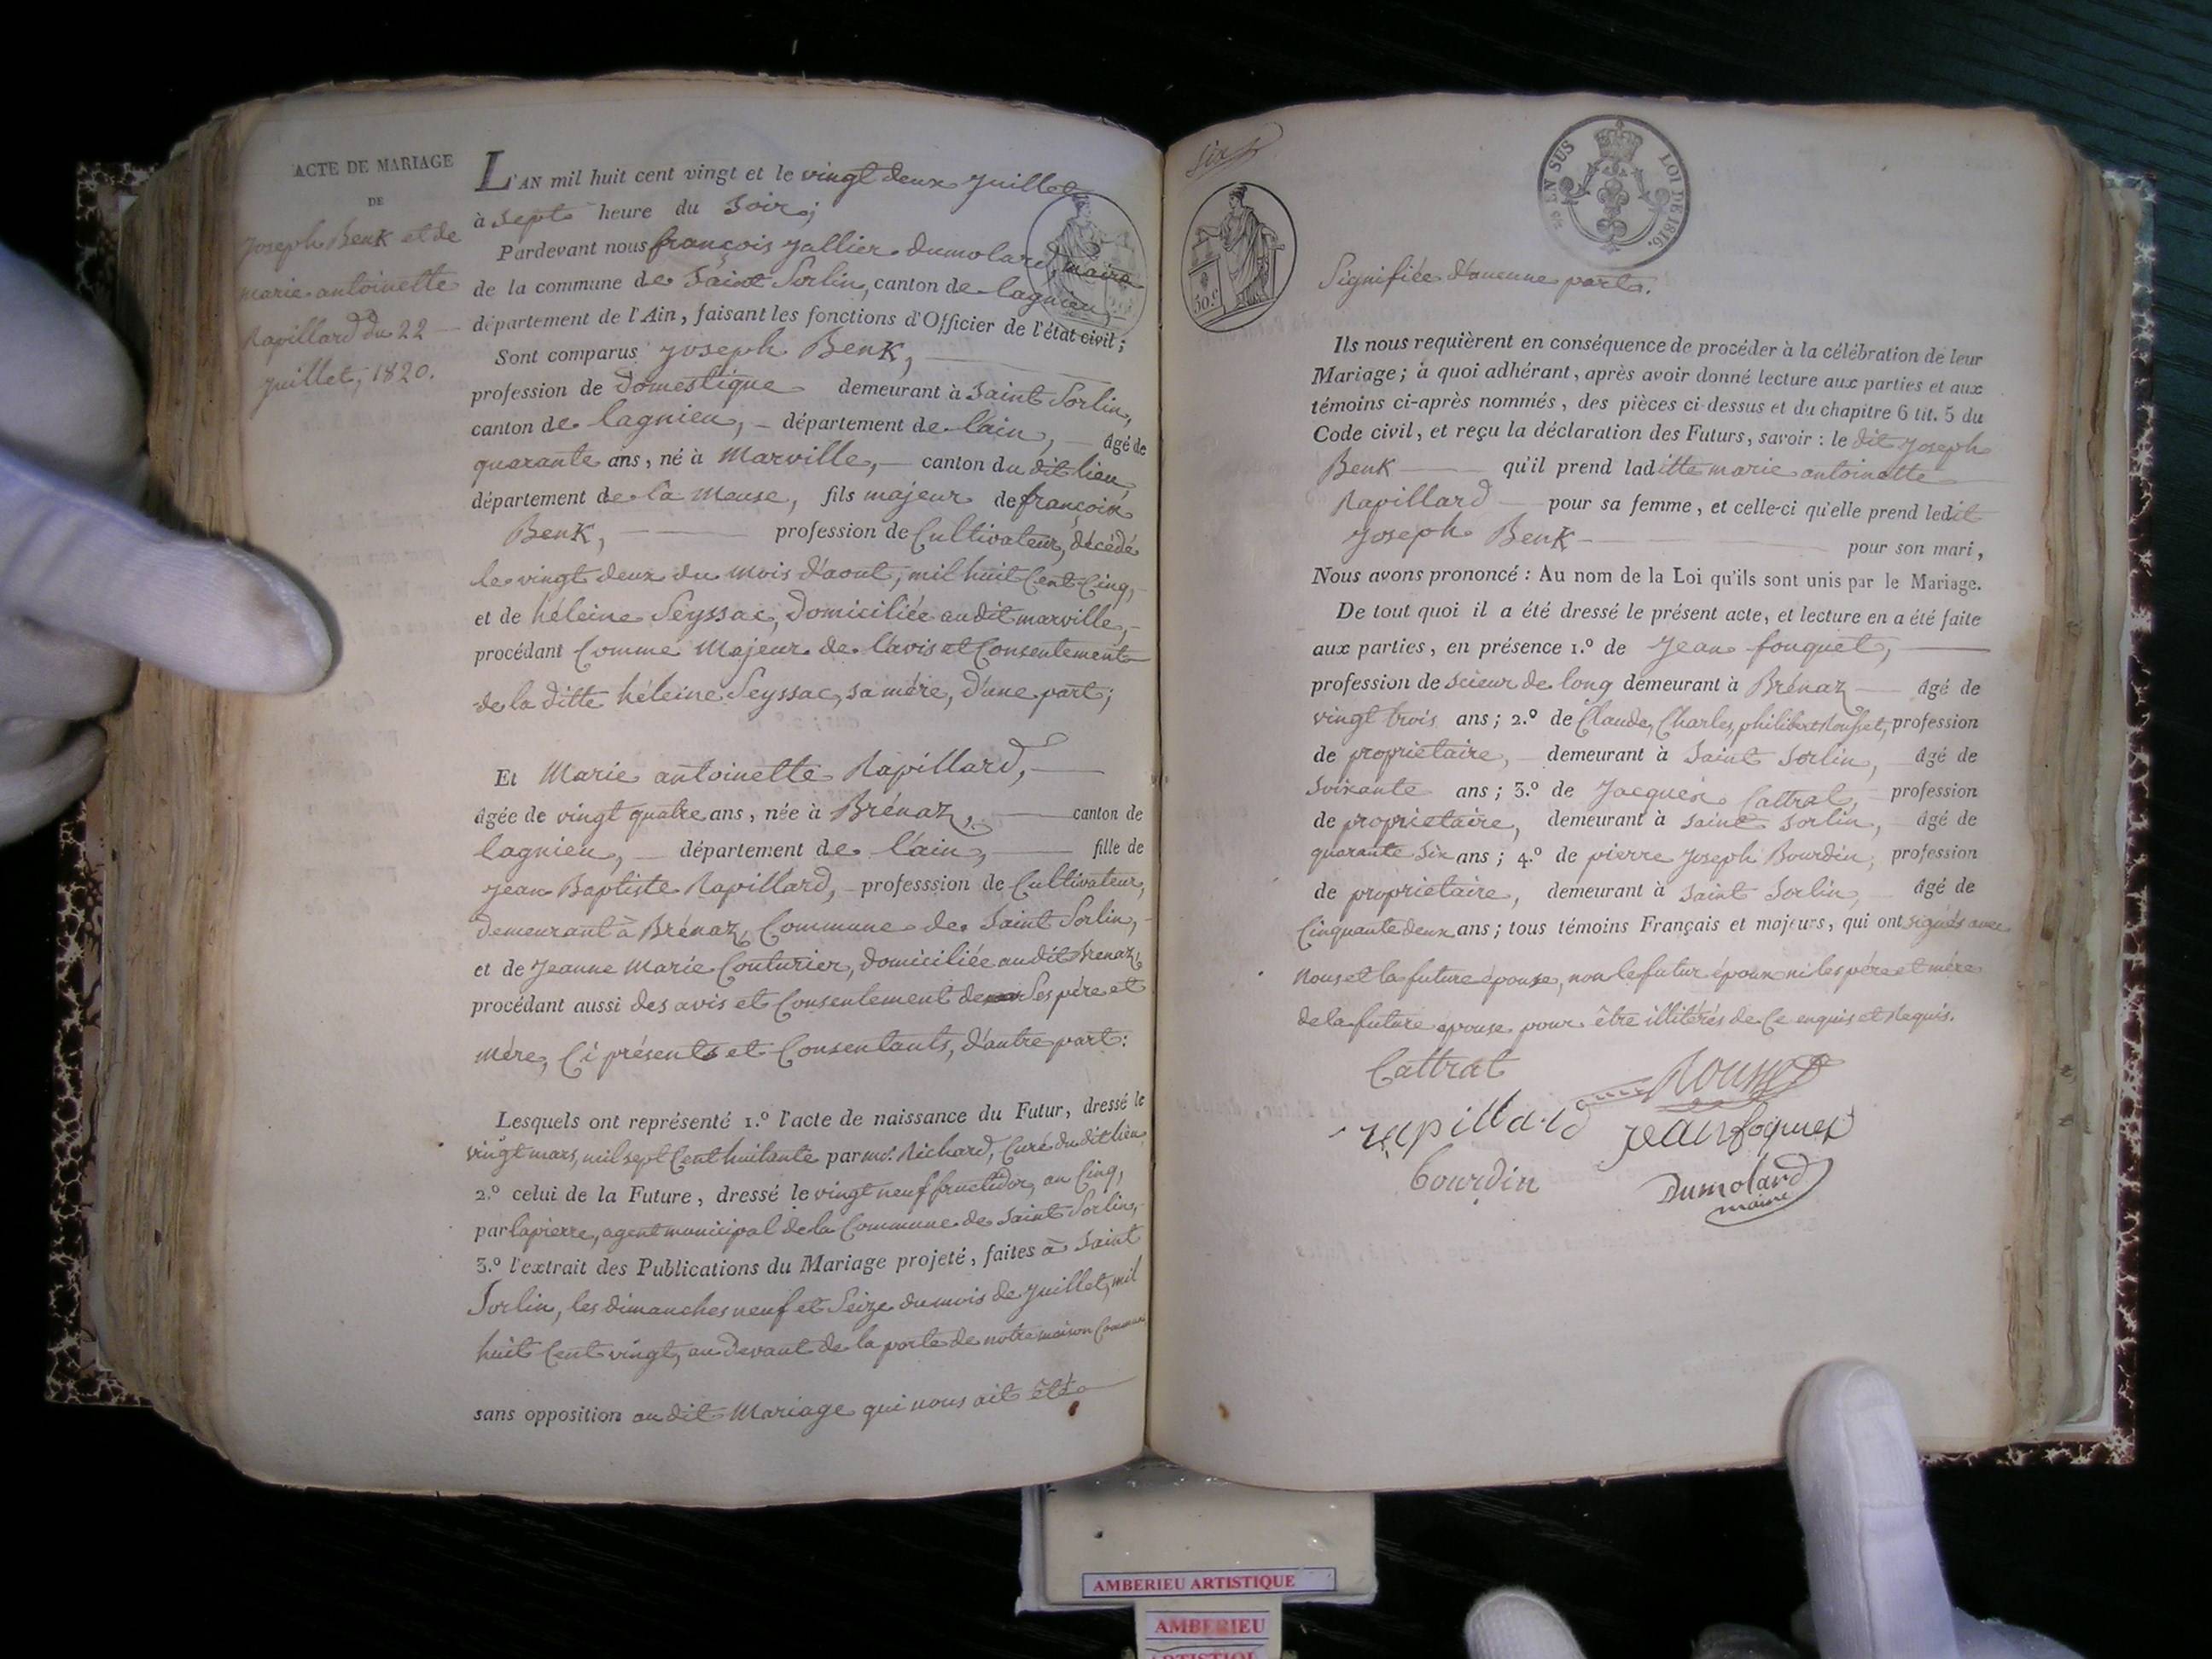 ACTE DE MARIAGE
DE
Joseph Benk et de
marie antoinette
Rapillard du 22
Juillet, 1820.
L'AN mil huit cent vingt et le vingt deux Juillet
à sept heure du Soir;
Pardevant nous françois Jallier Dumolard, maire
de la commune de Saint Sorlin, canton de lagnieu,
département de l'Ain, faisant les fonctions d'Officier de l'état civil;
Sont comparus Joseph Benk,
profession de Domestique demeurant à Saint Sorlin,
canton de lagnieu, département de l'ain, âgé de
quarante ans, né à Marville, canton du dit lieu,
département de la Meuse, fils majeur de françois
Benk, profession de Cultivateur, décédé
le vingt deux du mois d'aout, mil huit Cent Cinq,
et de héleine Seyssac, Domiciliée au dit marville,
procédant Comme Majeur de l'avis et Consentement
de la ditte héleine Seyssac, sa mére, d'une part;
Et Marie antoinette Rapillard,
âgée de vingt quatre ans, née à Brénaz, canton de
lagnieu, département de l'ain, fille de
Jean Baptiste Rapillard, professsion de Cultivateur,
demeurant à Brénaz, Commune de Saint Sorlin,
et de Jeanne Marie Couturier, domiciliée au dit Brenaz,
procédant aussi des avis et Consentement de Ses pére et
mére, Ci présents et Consentants, d'autre part:
Lesquels ont représenté 1.º l'acte de naissance du Futur, dressé le
vingt mars, mil sept Cent huitante par mr. Richard, Curé du dit lieu,
2.º celui de la Future, dressé le vingt neuf fructidor, an Cinq,
par lapierre, agent municipal de la Commune de Saint Sorlin,
3.º l'extrait des Publications du Mariage projeté, faites à Saint
Sorlin, les dimanches neuf et Seize du mois de Juillet, mil
huit Cent vingt, au devant de la porte de notre maison Commune
sans opposition au dit Mariage qui nous ait été
Six
50 c
EN SUS
LOI DE 1816.
Signifiée d'aucune part.
Ils nous requièrent en conséquence de procéder à la célébration de leur
Mariage; à quoi adhérant, après avoir donné lecture aux parties et aux
témoins ci-après nommés, des pièces ci-dessus et du chapitre 6 tit. 5 du
Code civil, et reçu la déclaration des Futurs, savoir: le dit Joseph
Benk qu'il prend laditte marie antoinette
Rapillard pour sa femme, et celle-ci qu'elle prend ledit
Joseph Benk pour son mari,
Nous avons prononcé: Au nom de la Loi qu'ils sont unis par le Mariage.
De tout quoi il a été dressé le présent acte, et lecture en a été faite
aux parties, en présence 1.º de Jean fouquet,
profession de scieur de long demeurant à Brénaz âgé de
vingt trois ans; 2.º de Claude, Charles, philibert Rousset, profession
de propriétaire, demeurant à Saint Sorlin, âgé de
Soixante ans; 3.º de Jacques Cattrat, profession
de propriétaire, demeurant à Saint Sorlin, âgé de
quarante Six ans; 4.º de pierre Joseph Bourdin, profession
de propriétaire, demeurant à Saint Sorlin, âgé de
Cinquante deux ans; tous témoins Français et majeurs, qui ont signés avec
Nous et la future épouse, non le futur époux ni les pére et mére
de la future épouse pour être illitérés de Ce enquis et Requis.
Cattrat
Rousset
rapillard
jean foquet
bourdin
Dumolard
maire
AMBERIEU ARTISTIQUE
AMBERIEU
ARTISTIQUE